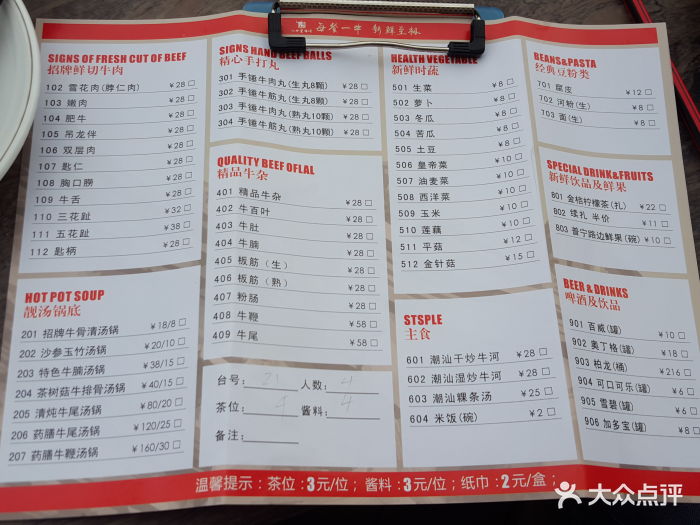 每餐一牛 新鲜至极
SIGNS OF FRESH CUT OF BEEF
招牌鲜切牛肉
102 雪花肉(脖仁肉) ¥28
103 嫩肉 ¥28
104 肥牛 ¥28
105 吊龙伴 ¥28
106 双层肉 ¥28
107 匙仁 ¥28
108 胸口朥 ¥28
109 牛舌 ¥28
110 三花趾 ¥32
111 五花趾 ¥38
112 匙柄 ¥28
HOT POT SOUP
靓汤锅底
201 招牌牛骨清汤锅 ¥18/8
202 沙参玉竹汤锅 ¥20/10
203 特色牛腩汤锅 ¥38/15
204 茶树菇牛排骨汤锅 ¥40/15
205 清炖牛尾汤锅 ¥80/20
206 药膳牛尾汤锅 ¥120/25
207 药膳牛鞭汤锅 ¥160/30
SIGNS HAND BEEF BALLS
精心手打丸
301 手锤牛肉丸(生丸8颗) ¥28
302 手锤牛筋丸(生丸8颗) ¥28
303 手锤牛肉丸(熟丸10颗) ¥28
304 手锤牛筋丸(熟丸10颗) ¥28
QUALITY BEEF OFLAL
精品牛杂
401 精品牛杂 ¥28
402 牛百叶 ¥28
403 牛肚 ¥28
404 牛腩 ¥28
405 板筋（生） ¥28
406 板筋（熟） ¥28
407 粉肠 ¥28
408 牛鞭 ¥58
409 牛尾 ¥58
台号: 21 人数: 4
茶位: 4 酱料: 4
备注:
HEALTH VEGETABLE
新鲜时蔬
501 生菜 ¥8
502 萝卜 ¥8
503 冬瓜 ¥8
504 苦瓜 ¥8
505 土豆 ¥8
506 皇帝菜 ¥10
507 油麦菜 ¥10
508 西洋菜 ¥10
509 玉米 ¥10
510 莲藕 ¥10
511 平菇 ¥12
512 金针菇 ¥15
STSPLE
主食
601 潮汕干炒牛河 ¥28
602 潮汕湿炒牛河 ¥28
603 潮汕粿条汤 ¥25
604 米饭(碗) ¥2
BEANS&PASTA
经典豆粉类
701 腐皮 ¥12
702 河粉(生) ¥8
703 面(生) ¥8
SPECIAL DRINK&FRUITS
新鲜饮品及鲜果
801 金桔柠檬茶(扎) ¥22
802 续扎 半价 ¥11
803 普宁路边鲜果(碗) ¥10
BEER & DRINKS
啤酒及饮品
901 百威(罐) ¥10
902 奥丁格(罐) ¥18
903 柏龙(桶) ¥216
904 可口可乐(罐) ¥6
905 雪碧(罐) ¥6
906 加多宝(罐) ¥8
温馨提示：茶位：3元/位；酱料：3元/位；纸巾：2元/盒；
大众点评